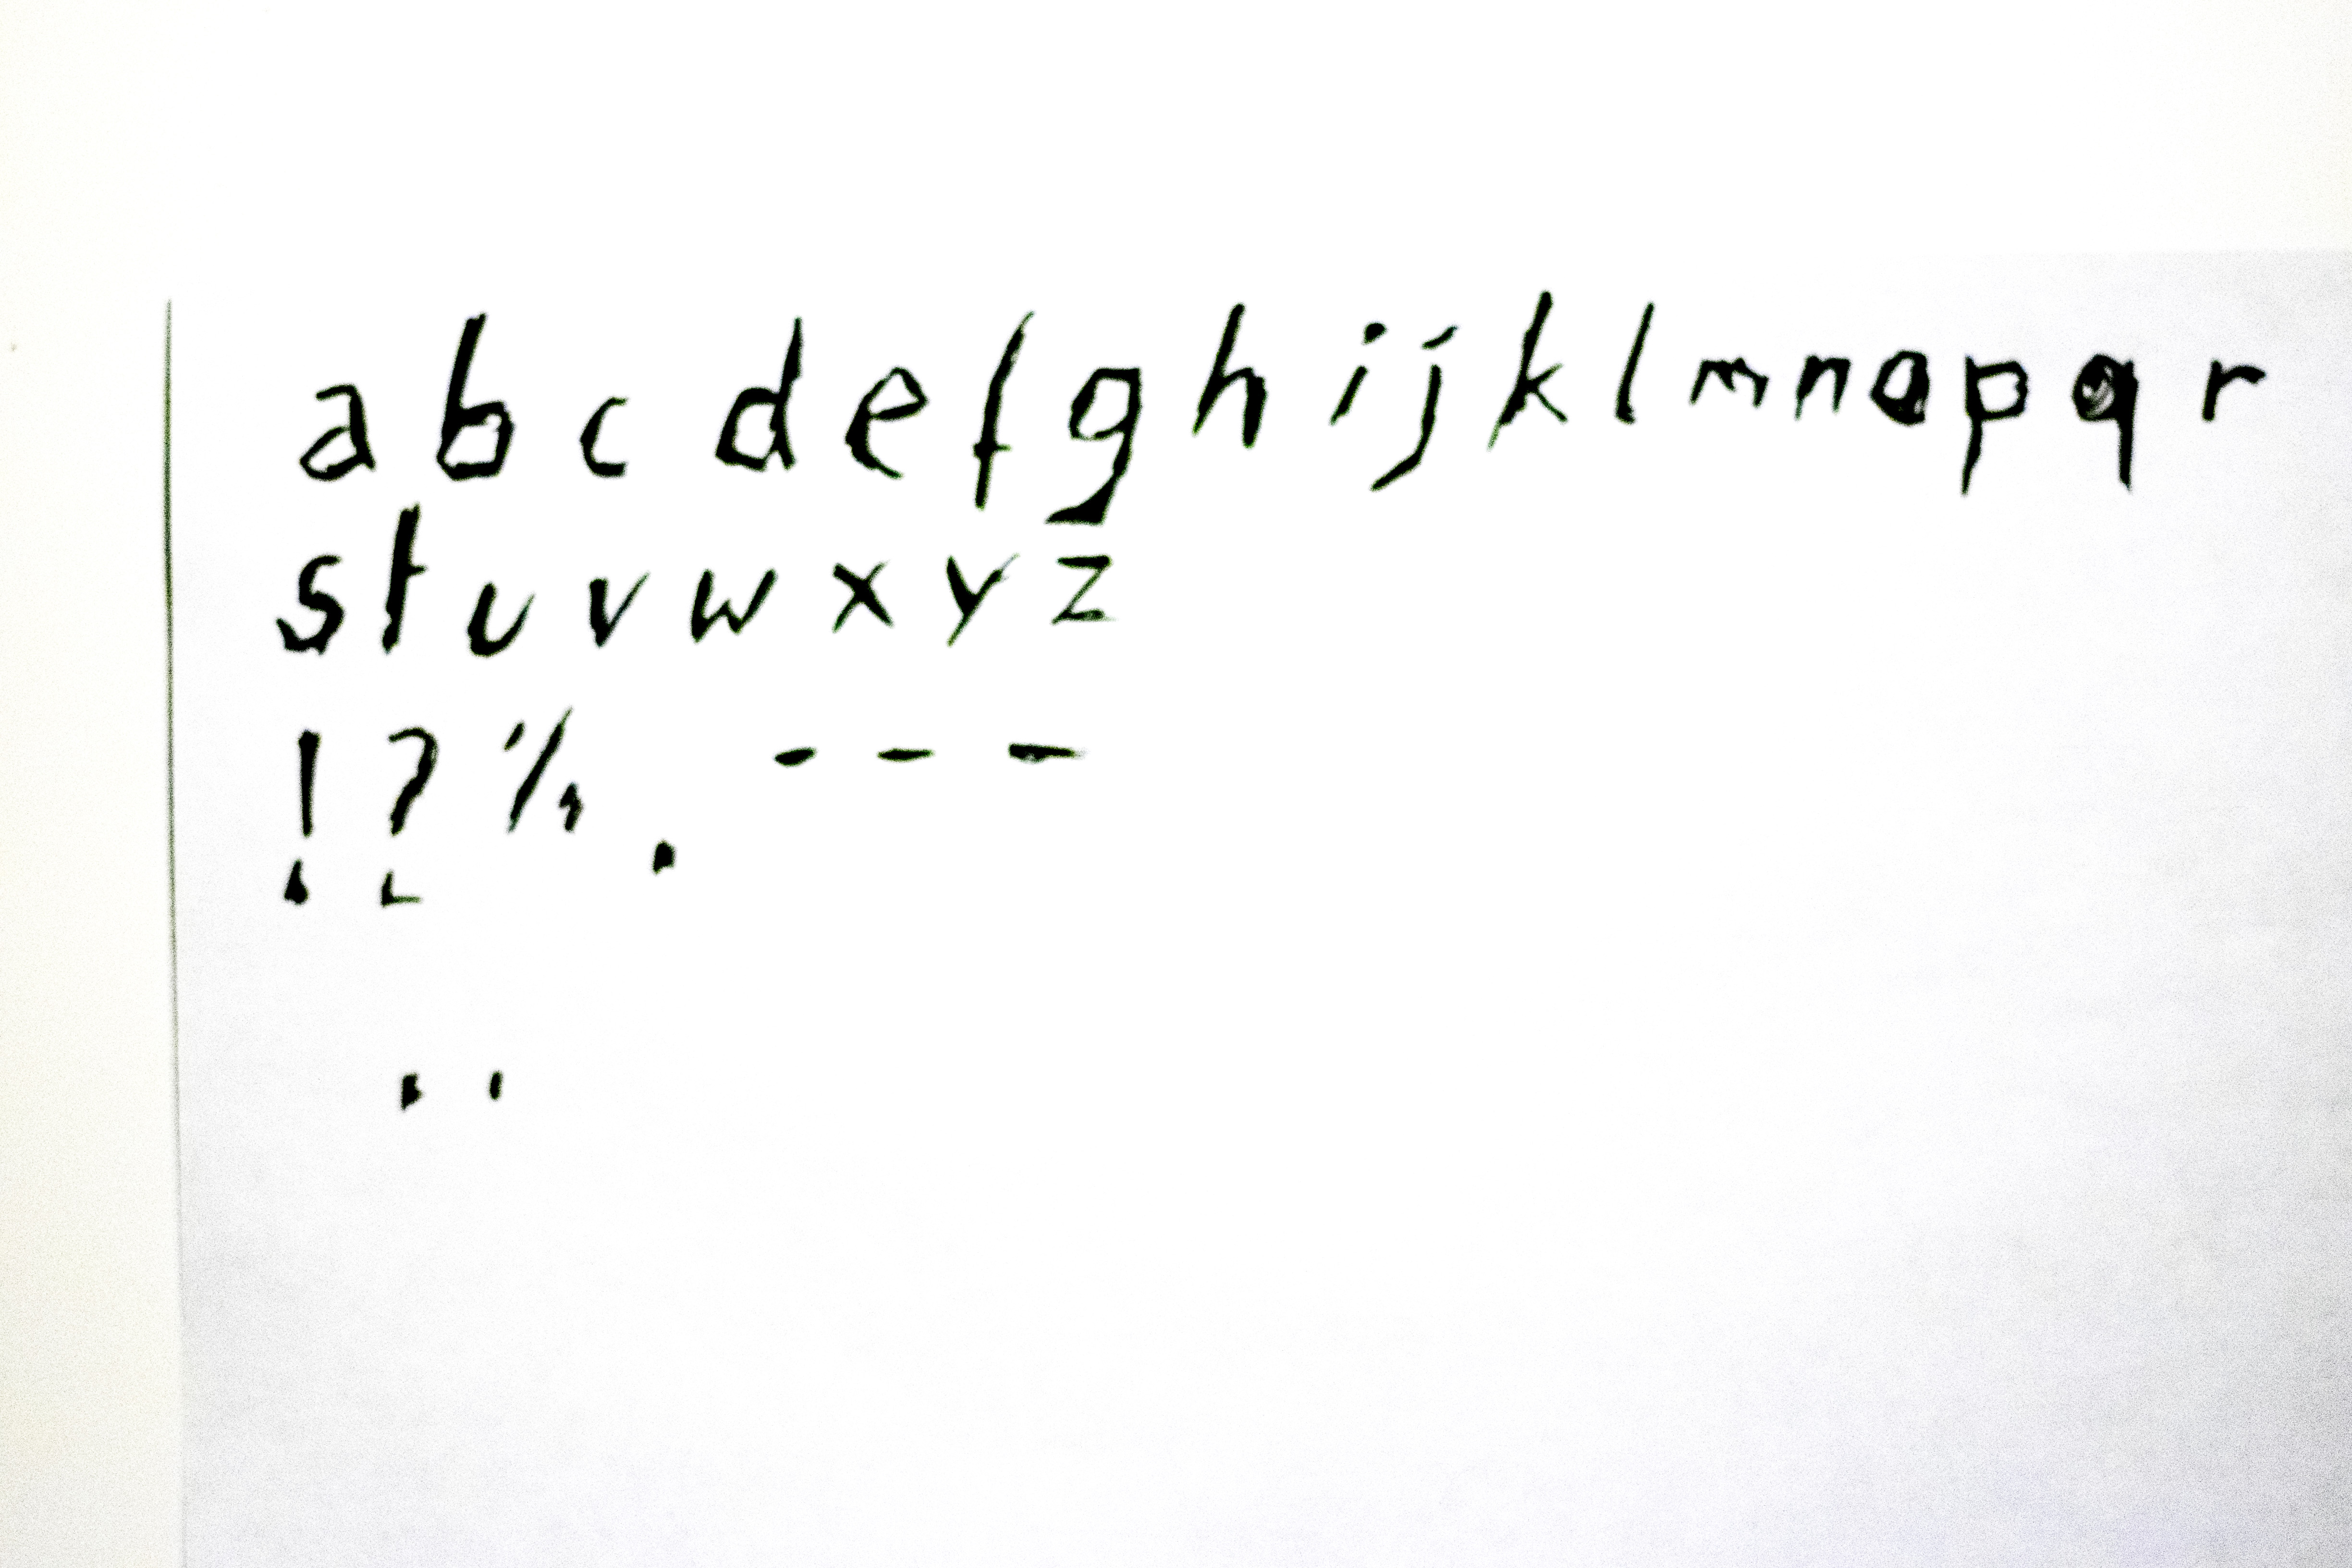 a b c d e f g h i j k l m n o p q r
s t u v w x y z
! ? % . - - -
. .